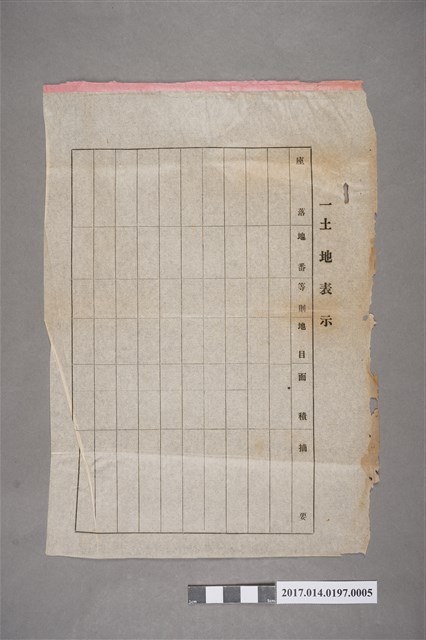 一土地表示
座落地番等則地目面積摘要
2017.014.0197.0005